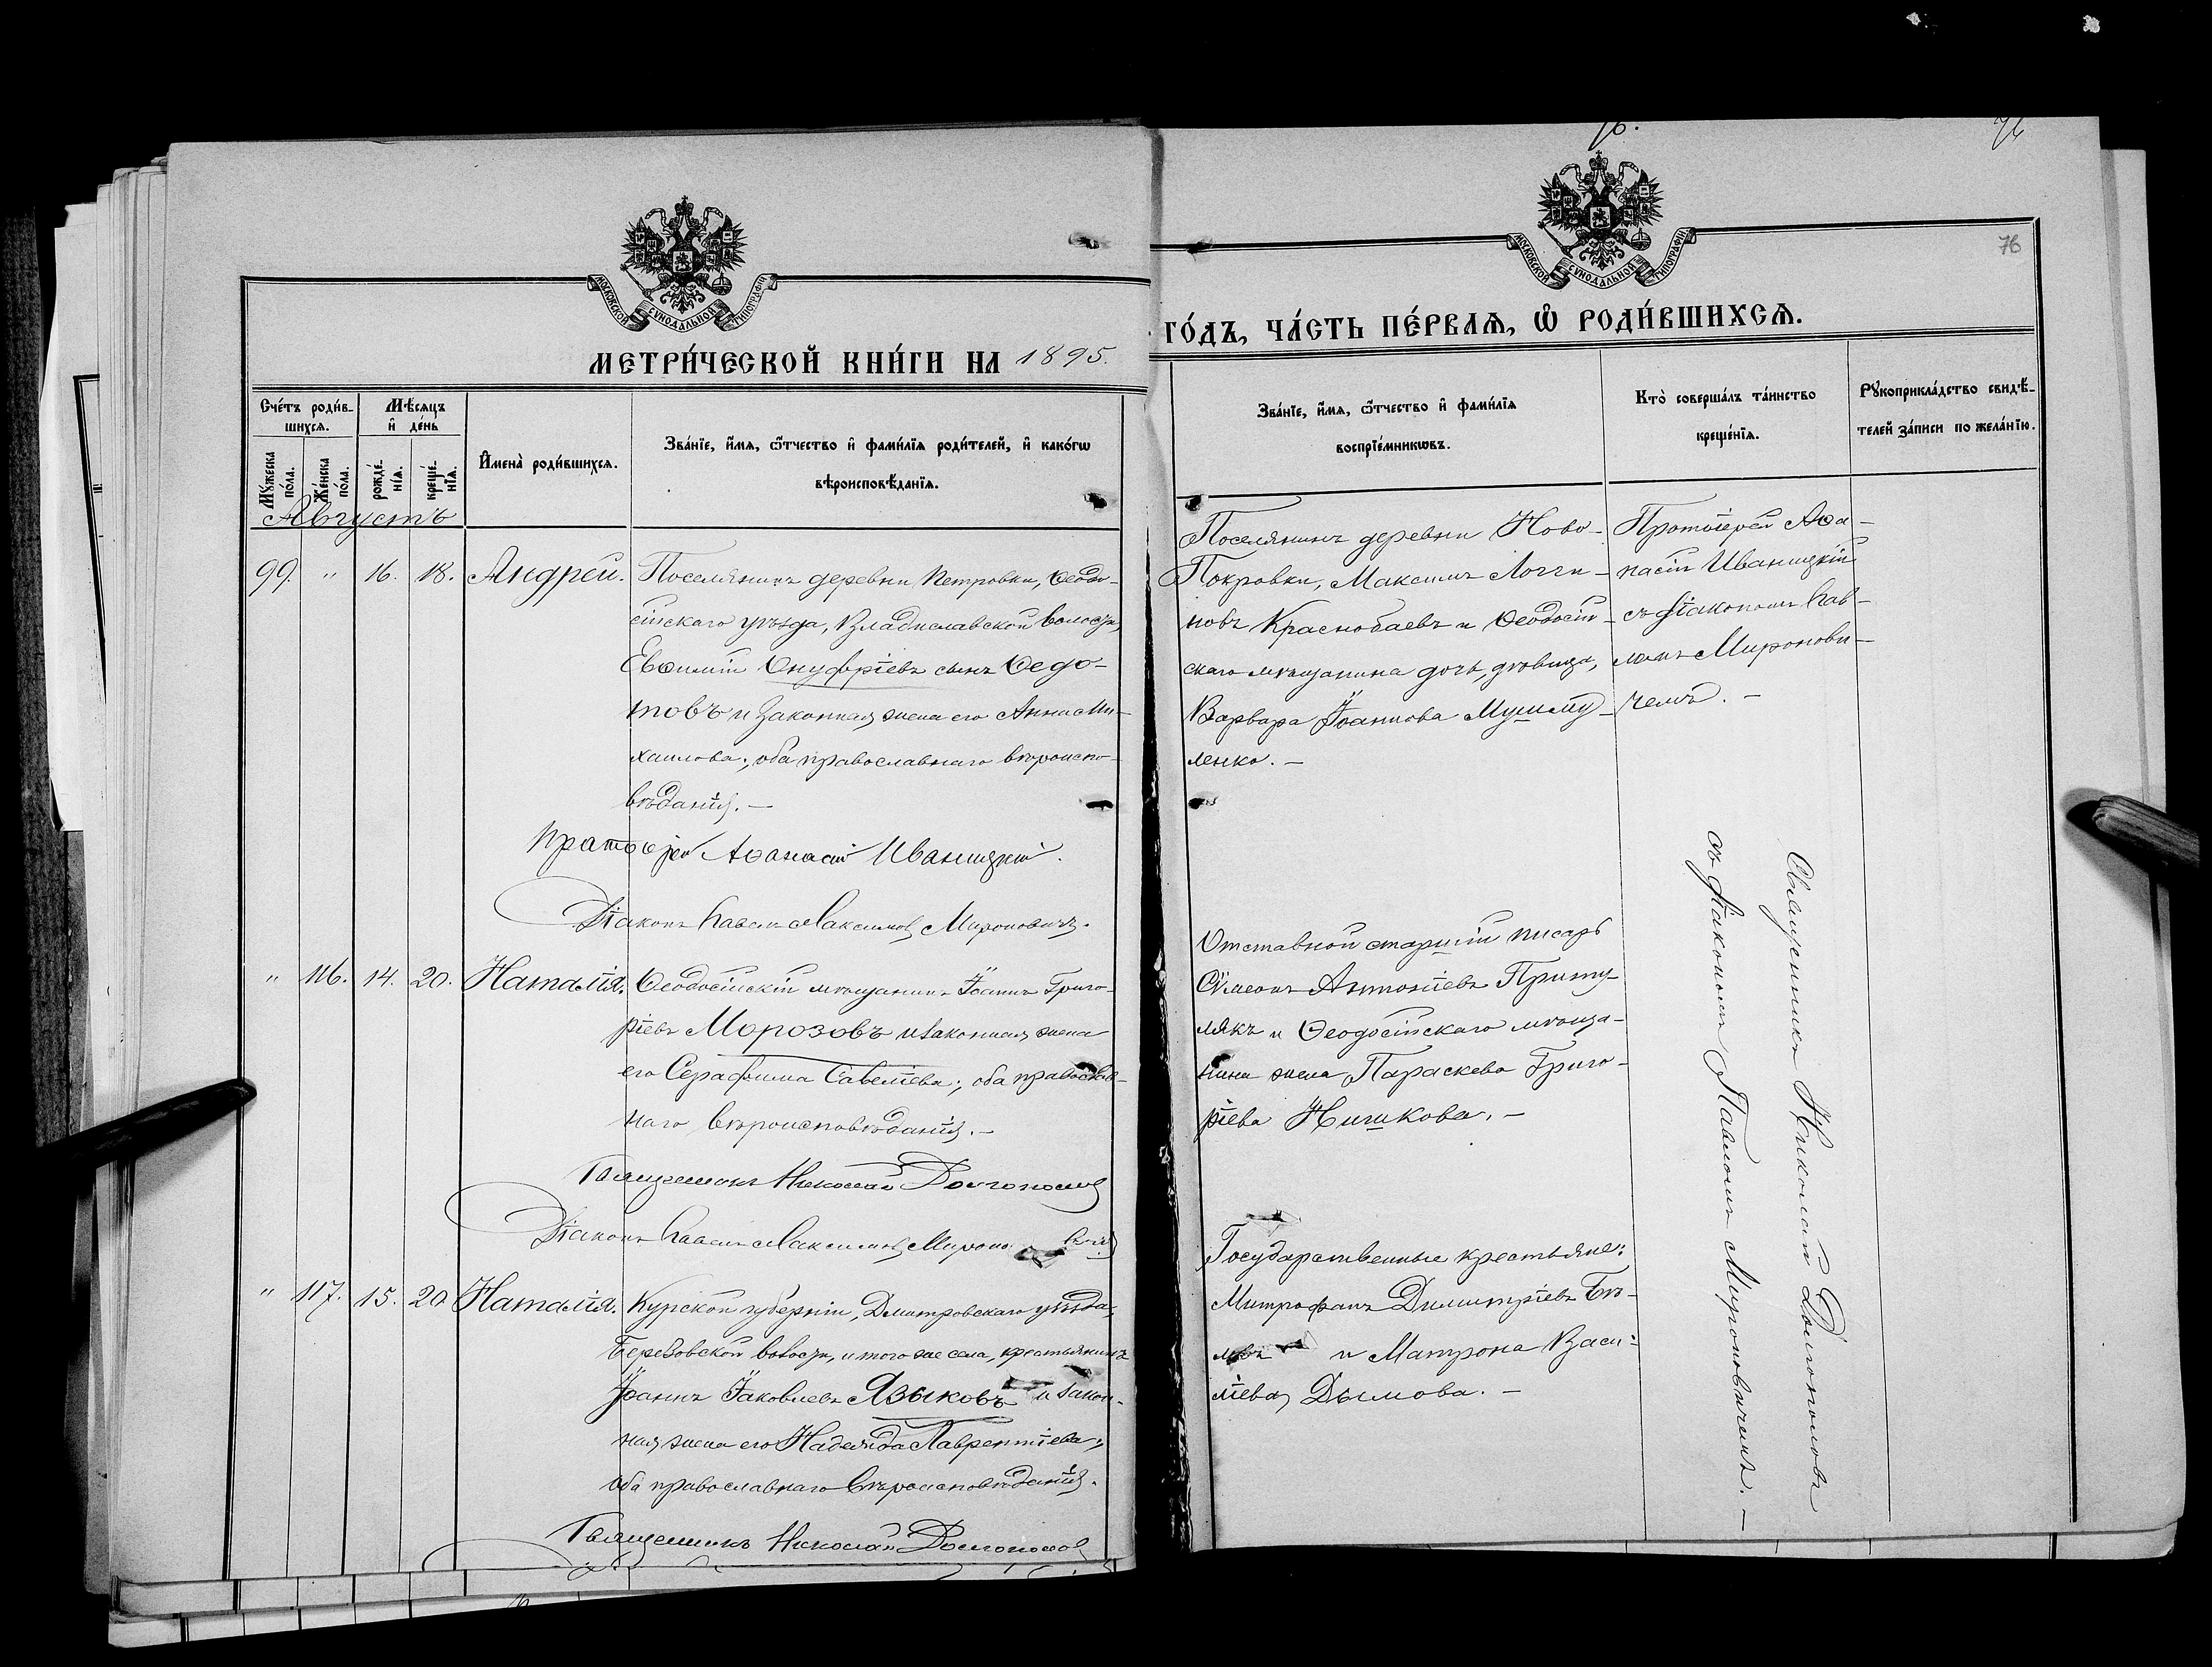 76.
76
76
МОСКОВСКОЙ СѴНОДАЛЬНОЙ ТИПОГРАФІИ
МОСКОВСКОЙ СѴНОДАЛЬНОЙ ТИПОГРАФІИ
МЕТРИ́ЧЕСКОЙ КНИ́ГИ НА 1895.
ГО́ДЪ, ЧА́СТЬ ПЕ́РВАѦ, Ѽ РОДИ́ВШИХСѦ.
Сче́тъ роди́в-
шихсѧ.
Мѣ́сѧцъ
и҆ де́нь
Мꙋ́жеска
по́ла.
Же́нска
по́ла.
рожде́-
нїѧ.
креще́-
нїѧ.
И҆мена̀ роди́вшихсѧ.
Зва́нїе, и҆́мѧ, ѻ҆́тчество и҆ фами́лїѧ роди́телей, и҆ како́гѡ
вѣроисповѣ́данїѧ.
Зва́нїе, и҆́мѧ, ѻ҆́тчество и҆ фами́лїѧ
воспрїе́мникѡвъ.
Кто̀ соверша́лъ та́инство
креще́нїѧ.
Рꙋкоприкла́дство свидѣ́-
телей за́писи по жела́нїю.
Августъ
99. " 16. 18. Андрей. Поселянинъ деревни Петровки, Ѳеодо-
сійскаго уѣзда, Владиславской волости,
Евѳимій Онуфріевъ сынъ Ѳедо-
товъ и законная жена его Анна Ми-
хаилова; оба православнаго вѣроиспо-
вѣданія. —
Протоіерей Аѳанасій Иваницкій.
Діаконъ Павелъ Максимовъ Мироновичъ.
Поселянинъ деревни Ново-
Покровки, Максимъ Логги-
новъ Краснобаевъ и Ѳеодосій-
скаго мѣщанина дочь, дѣвица,
Варвара Іоаннова Мушту-
ленко. —
Протоіерей Аѳа-
насій Иваницкій
съ діакономъ Пав-
ломъ Миронови-
чемъ. —
" 116. 14. 20. Наталія. Ѳеодосійскій мѣщанинъ Іоаннъ Григо-
ріевъ Морозовъ и законная жена
его Серафима Савельева; оба православ-
наго вѣроисповѣданія. —
Священникъ Николай Долгополовъ
Діаконъ Павелъ Максимовъ Мироновичъ
Отставной старшій писарь
Сѵмеонъ Антоніевъ Приту-
лякъ и Ѳеодосійскаго мѣща-
нина жена Параскева Григо-
ріева Нишкова. —
" 117. 15. 20 Наталія. Курской губерніи, Дмитровскаго уѣзда,
Березовской волости, и того же села, крестьянинъ
Іоаннъ Іаковлевъ Языковъ и закон-
ная жена его Надежда Лаврентіева;
оба православнаго вѣроисповѣданія.
Священникъ Николай Долгополовъ
Государственные крестьяне:
Митрофанъ Димитріевъ Бѣ-
ловъ и Матрона Васи-
ліева Дымова. —
Священникъ Николай Долгополовъ
съ діакономъ Павломъ Мироновичемъ. —